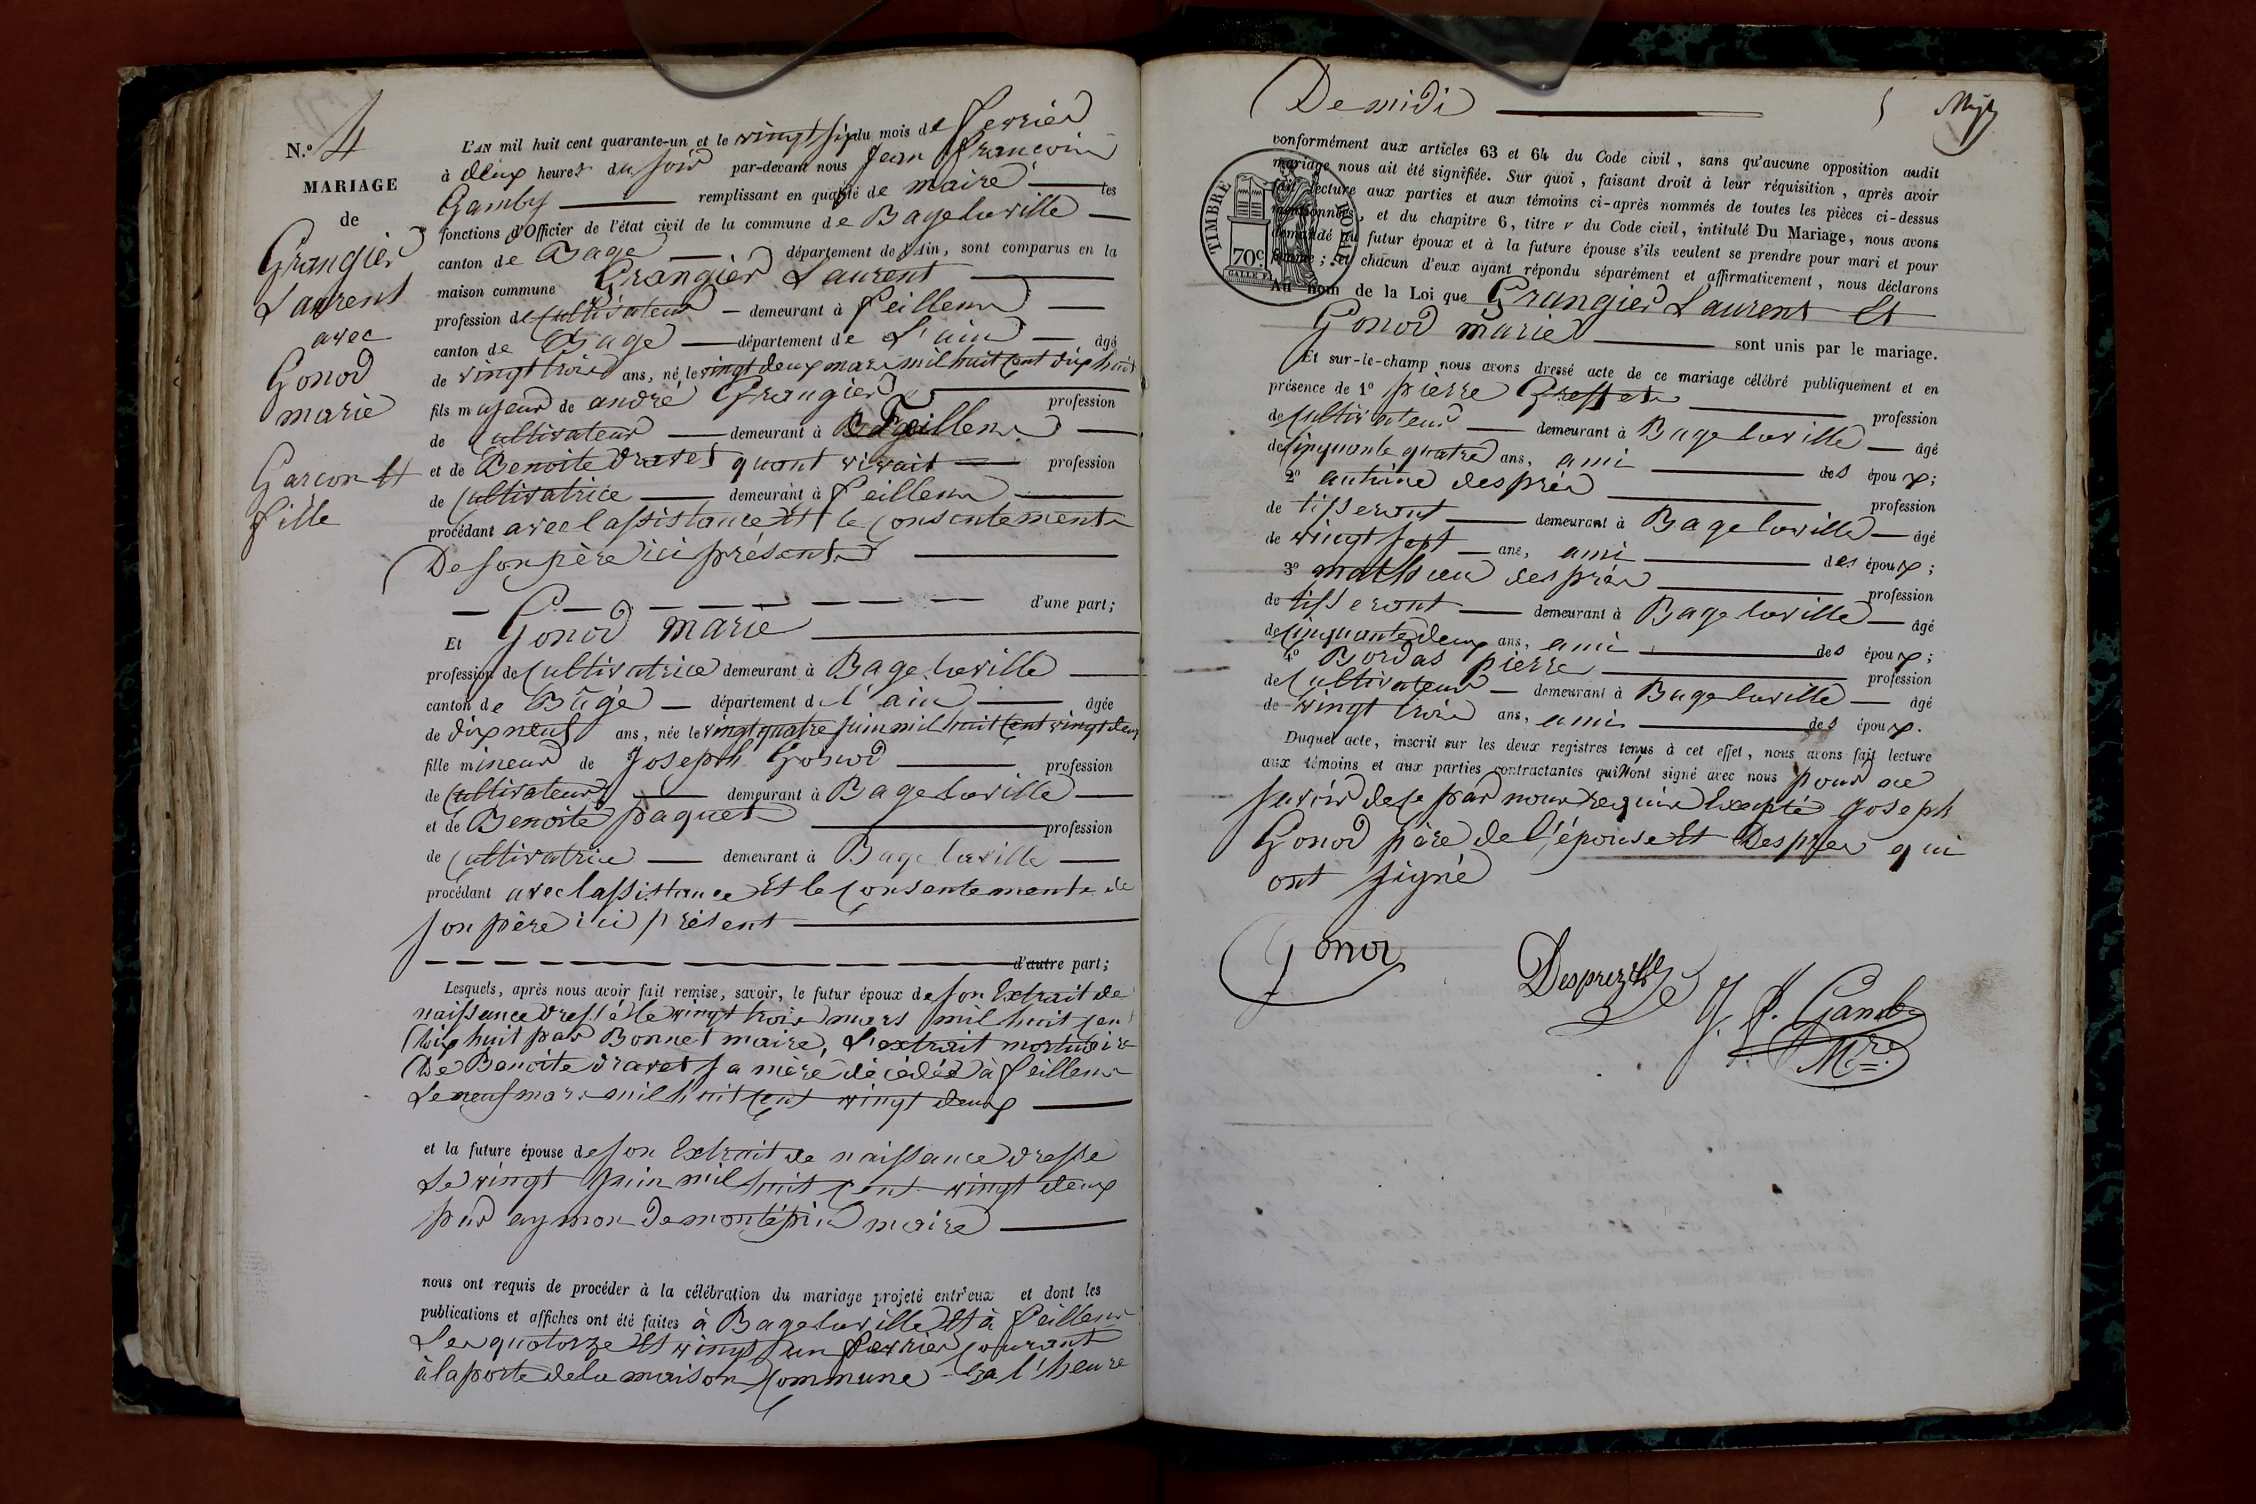 N.º 4
MARIAGE
de
Grangier
Laurent
avec
Gonod
marie
Garcon et
fille
L'AN mil huit cent quarante-un et le vingt six du mois de fevrier
à deux heures du soir par-devant nous Jean francois
Gamby remplissant en qualité de maire les
fonctions d'Officier de l'état civil de la commune de Bagelaville
canton de Bagé département de l'Ain, sont comparus en la
maison commune Grangier Laurent
profession de Cultivateur demeurant à feillens
canton de Bagé département de L'ain âgé
de vingt trois ans, né le vingt deux mars mil huit cent dix huit
fils majeur de andré Grangier profession
de Cultivateur demeurant à feillens
et de Benoite dravet quant vivait profession
de Cultivatrice demeurant à feillens
procédant avec lassistance et le consentement
De son père ici présent
d'une part;
Et Gonod marie
profession de Cultivatrice demeurant à Bagelaville
canton de Bâgé département de l'ain âgée
de dix neuf ans, née le vingt quatre juin mil huit cent vingt deux
fille mineur de Joseph Gonod profession
de Cultivateur demeurant à Bagelaville
et de Benoite paquet profession
de Cultivatrice demeurant à Bagelaville
procédant avec lassistance et le consentement de
son père ici présent
d'autre part;
Lesquels, après nous avoir fait remise, savoir, le futur époux de son Extrait de
naissance dressé le vingt trois mars mil huit cent
dix huit par Bonnet maire, l'extrait mortuaire
De Benoite dravet sa mère décédée à feillens
Le neuf mars mil huit cent vingt deux
et la future épouse de son Extrait de naissance dressé
Le vingt juin mil huit cent vingt deux
par aymon De montépin maire
nous ont requis de procéder à la célébration du mariage projeté entr'eux et dont les
publications et affiches ont été faites à Bagelaville et à feillens
Les quatorze et vingt un fevrier courant
à la porte de la maison commune à l'heure
De midi
5
conformément aux articles 63 et 64 du Code civil, sans qu'aucune opposition audit
mariage nous ait été signifiée. Sur quoi, faisant droit à leur réquisition, après avoir
fait lecture aux parties et aux témoins ci-après nommés de toutes les pièces ci-dessus
mentionnées, et du chapitre 6, titre v du Code civil, intitulé Du Mariage, nous avons
demandé au futur époux et à la future épouse s'ils veulent se prendre pour mari et pour
femme; et chacun d'eux ayant répondu séparément et affirmativement, nous déclarons
TIMBRE ROYAL
70c
Au nom de la Loi que Grangier Laurent et
Gonod marie sont unis par le mariage.
Et sur-le-champ nous avons dressé acte de ce mariage célébré publiquement et en
présence de 1º pierre Greffet profession
de Cultivateur demeurant à Bagelaville âgé
de Cinquante quatre ans, ami des époux;
2º antoine després profession
de tisseront demeurant à Bagelaville âgé
de vingt sept ans, ami des époux;
3º mathieu després profession
de tisseront demeurant à Bagelaville âgé
de Cinquante deux ans, ami des époux;
4º Bordas pierre profession
de Cultivateur demeurant à Bagelaville âgé
de vingt trois ans, ami des époux.
Duquel acte, inscrit sur les deux registres tenus à cet effet, nous avons fait lecture
aux témoins et aux parties contractantes qui n'ont signé avec nous pour ne
savoir de ce par nous requis Excepté Joseph
Gonod père de l'épouse et Desprez qui
ont signé
Gonod
Desprez
J. F. Gamby
Mre